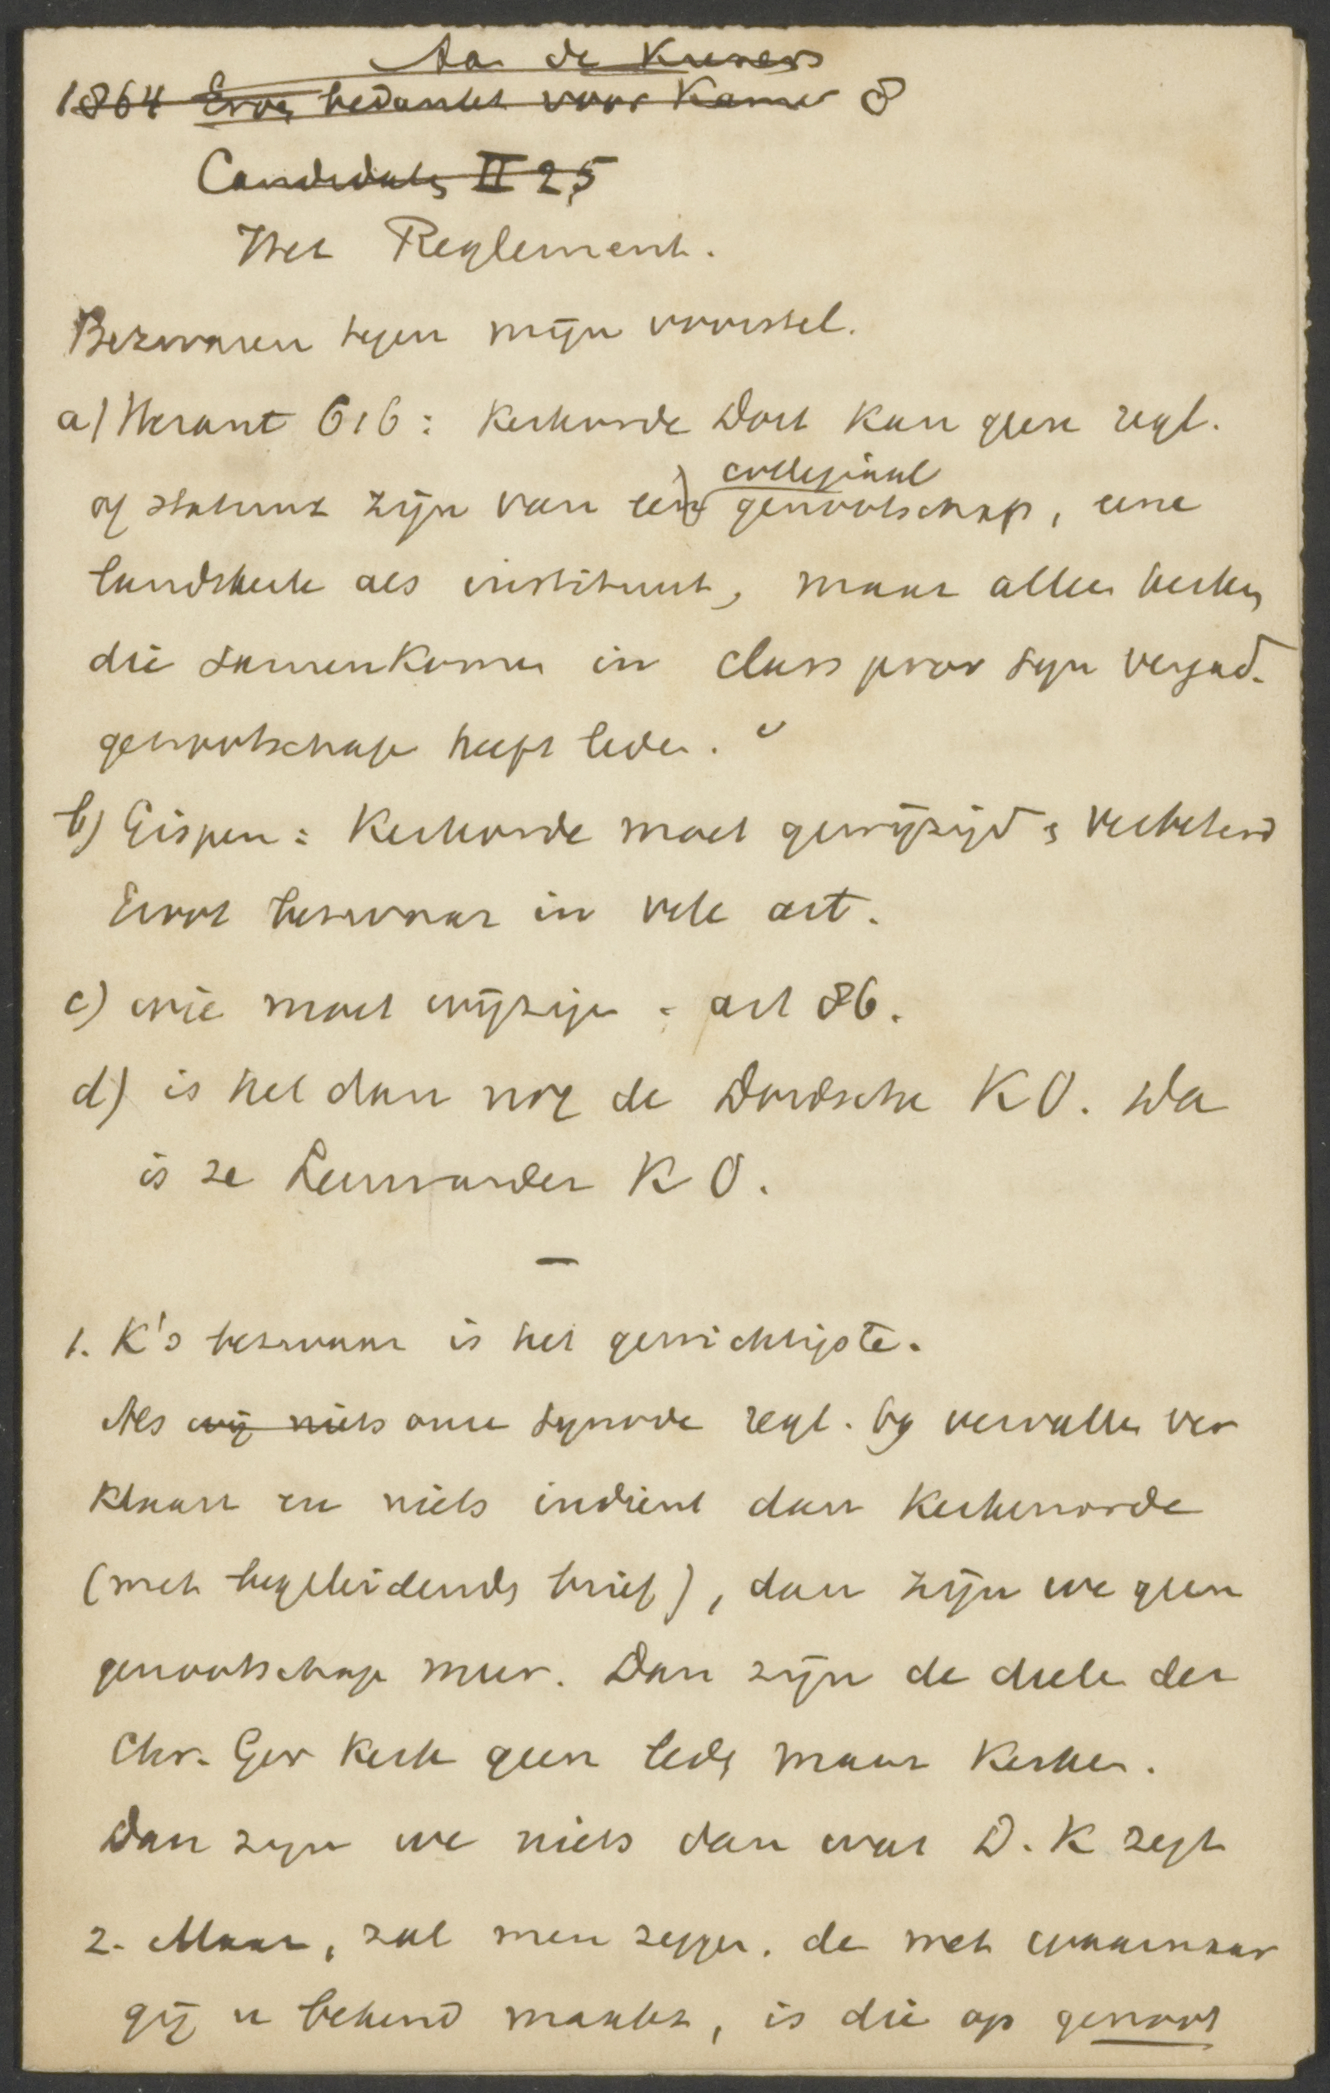 Aan de Kiezers
1864 Eros bedankt voor Kamer 8
Candidats II 25
Het Reglement.
Bezwaren tegen mijn voorstel.
a) Heraut 616: Kerkorde Dort kan geen regl.
collegiaal
of statuut zijn van een genootschap, eene
landskerk als instituut, maar alleen kerken
die samenkomen in class prov syn vergad.
genootschap heeft leden. "
b) Gispen: Kerkorde moet gewijzigd & verbeterd
Groot bezwaar in vele art.
c) wie moet wijzigen. art 86.
d) is het dan nog de Dordsche KO. Da
is ze Leeuwarder KO.
—
1. K's bezwaar is het gewichtigste.
Als wij niets onze synode regl. bij vervallen ver
klaart en niets indient dan Kerkenorde
(met begeleidende brief), dan zijn we geen
genootschap meer. Dan zijn de deelen der
Chr. Ger Kerk geen leden maar Kerken.
Dan zijn we niets dan wat D. K zegt
2. Maar, zal men zeggen. de wet waarnaar
gij u bekend maakt, is die op genoot